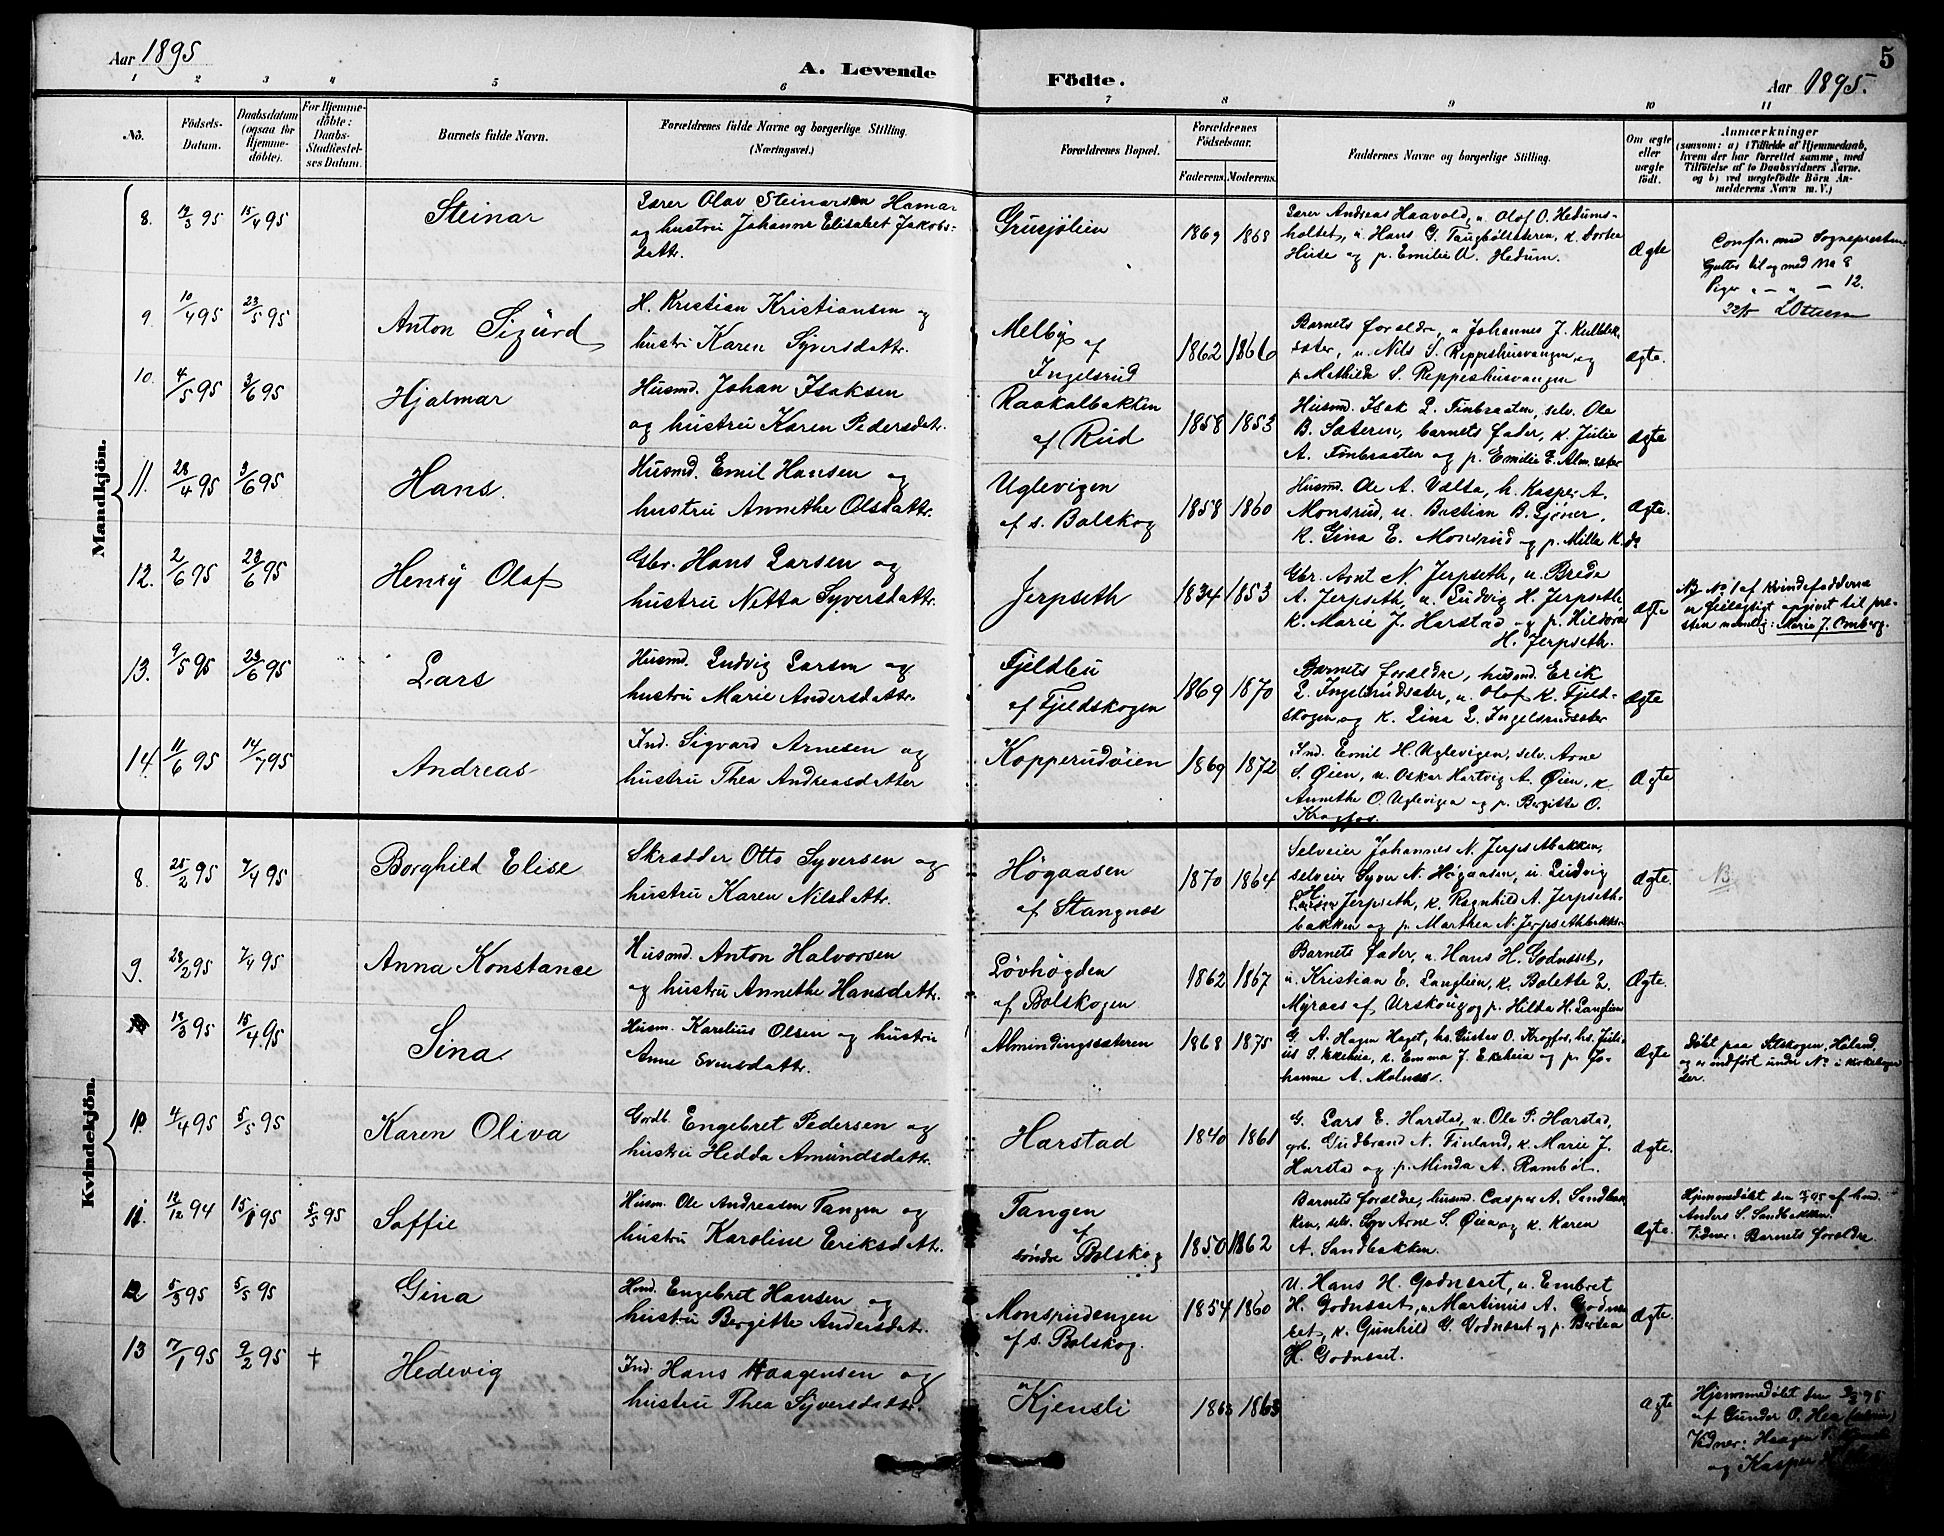 Aar 1895
A. Levende Födte.
Aar 1895.
5
1 2 3 4 5 6 7 8 9 10 11
No.
Födsels-Datum.
Daabsdatum (ogsaa for Hjemmedöbte).
For Hjemmedöbte: Daabs-Stadfæstelses Datum.
Barnets fulde Navn.
Forældrenes fulde Navne og borgerlige Stilling.
(Næringsvei.)
Forældrenes Bopæl.
Forældrenes Födselsaar.
Faderens. Moderens.
Faddernes Navne og borgerlige Stilling.
Om ægte eller uægte födt.
Anmærkninger
(saasom: a) i Tilfælde af Hjemmedaab, hvem der har forrettet samme, med Tilföielse af to Daabsvidners Navne. og b) ved uægtefödte Börn Anmelderens Navn m. V.)
Mandkjön.
8. 12/3 95 15/4 95 Steinar
Lærer Olav Steinarsen Hamar
og hustru Johanne Elisabet Jakobs-
datr.
Grusjölien 1869 1868
Lærer Andreas Haavold, u. Olof O. Hedums-
holtet, u. Hans G. Taugbölsæteren, k. Dortea
Huse og p. Emilie A. Hedum.
Ægte
Conf. med Sognepresten
Gutter til og med No 8
Piger " — " — 12.
9. 10/4 95 23/5 95 Anton Sigurd
H. Kristian Kristiansen og
hustru Karen Syversdatr.
Melby af
Ingelsrud
1862 1866
Barnets forældre, u Johannes J. Kulbæk-
sæter, u. Nils S. Reppeshusvangen, og
p. Mathilde S. Reppeshusvangen
Ægte.
10. 4/5 95 3/6 95 Hjalmar
Husmd. Johan Isaksen
og hustru Karen Pedersdatr.
Raakalbakken
af Rud
1858 1853
Husmd. Isak L. Finbraaten, selv. Ole
B. Sæteren, barnets fader, k. Julie
A. Finbraaten og p. Emilie E. Alm.sæter
Ægte
11. 28/4 95 3/6 95 Hans.
Husmd. Emil Hansen og
hustru Annethe Olsdatr.
Uglevigen
af s. Bolskog
1858 1860
Husmd. Ole A. Vælta, h. Kasper A.
Monsrud, u. Bastian B. Sjöner,
k. Gina E. Monsrud og p. Milla K. ds
Ægte.
12. 2/6 95 23/6 95 Henry Olaf
Gbr. Hans Larsen og
hustru Netta Syversdattr.
Jerpseth 1834 1853
Gbr. Arnt N. Jerpseth, u. Brede
A. Jerpseth, u. Ludvig H. Jerpseth
k. Marie J. Harstad og p. Hildora
H. Jerpseth.
Ægte
NB No 1 af Kvindefadderne
er feilagtigt opgivet til pre-
sten nemlig: Marie J. Omberg.
13. 9/5 95 23/6 95 Lars
Husmd. Ludvig Larsen og
hustru Marie Andersdattr.
Fjeldbu
af Fjeldskogen
1869 1870
Barnets forældre, husmd. Erik
L. Ingelsrudsæter, u. Olof K. Fjeld-
skogen og k. Lina L. Ingelsrudsæter
Ægte
14. 11/6 95 14/7 95 Andreas
Ind. Sigvard Arnesen og
hustru Thea Andreasdatter
Kopperudöien 1869 1872
Ind. Emil H. Uglevigen, selv. Arne
S. Øien, u. Oskar Hartvig A. Øien, k.
Annethe O. Uglevigen og p. Bergitte O.
Krogfos.
Ægte
Kvindekjön.
8. 25/2 95 7/4 95 Borghild Elise
Skrædder Otto Syversen og
hustru Karen Nilsdatr.
Högaasen
af Stangnes
1870 1864
Selveier Johannes N. Jerpsetbakken,
selveier Syver N. Högaasen, u. Ludvig
H. Jerpseth, k. Ragnhild A. Jerpseth-
bakken og p. Marthea N. Jerpsethbakken
Ægte.
NB
9. 28/2 95 7/4 95 Anna Konstance
Husmd. Anton Halvorsen
og hustru Annethe Hansdatr.
Lövhögden
af Bolskogen
1862 1867
Barnets fader, u. Hans H. Godnæset,
u. Kristian E. Langlien, k. Bolette L.
Myraas af Urskoug og p. Hilda H. Langlien
Ægte.
12/3 95 15/4 95 Sina
Husm. Karelius Olsen og hustru
Anne Evensdattr.
Almindingssæteren 1868 1875
G. A. Hagen Haget, hs. Gustav O. Krogfos, hs. Juli-
us S. Ekeheia, k. Emma J. Ekeheia og p. Jo-
hanne A. Molness.
Ægte
Döbt paa Setskogen, Höland
og er indfört under No i kirkebogen
der.
10. 4/4 95 5/5 95 Karen Oliva
Gordb. Engebret Pedersen og
hustru Hedda Amundsdatr.
Harstad 1840 1861
G. Lars E. Harstad, u. Ole P. Harstad,
grb. Gudbrand N. Finland, k. Marie J.
Harstad og p. Minda A. Ramböl.
Ægte.
11. 12/12 94 15/1 95 5/5 95 Soffie
Husm. Ole Andreasen Tangen og
hustru Karoline Eriksdatr.
Tangen
af
söndre Bolskog
1850 1862
Barnets forældre, husmd. Casper A. Sandbak-
ken, selv. Arne S. Øien og k. Karen
A. Sandbakken.
Ægte.
Hjemmedöbt den 95 af hmd.
Anders S. Sandbakken.
Vidner: Barnets forældre.
12 5/3 95 5/5 95 Gina
Hmd. Engebret Hansen og
hustru Bergitte Andersdatr.
Monsrudengen
af s. Bolskog.
1854 1860
U. Hans H. Godnæset, u. Embret
H. Godnæset, u. Martinus A. Godnæ-
set, k. Gunhild G. Godnæset og p. Bertea
H. Godnæset.
Ægte.
13 7/1 95 9/2 95 † Hedevig
Ind. Hans Haagensen og
hustru Thea Syversdatr.
Kjensli 1863
Ægte
Hjemmedöbt den 95
af Gunder O. Hea
Vidner: Haagen
og Kasper